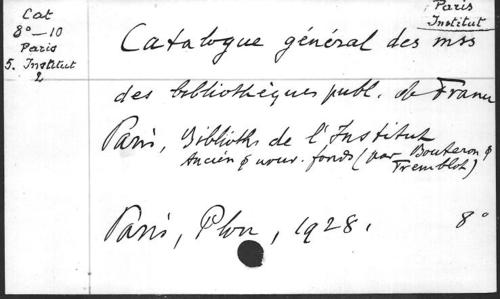 Cat
8°-10
Paris
5. Institut
2
Paris
Institut
Catalogue général des mss
des bibliothèques publ. de France
Paris, Biblioth. de l'Institut
Ancien & nouv. fonds (par Bouteron &
Tremblot)
Paris, Plon, 1928. 8°